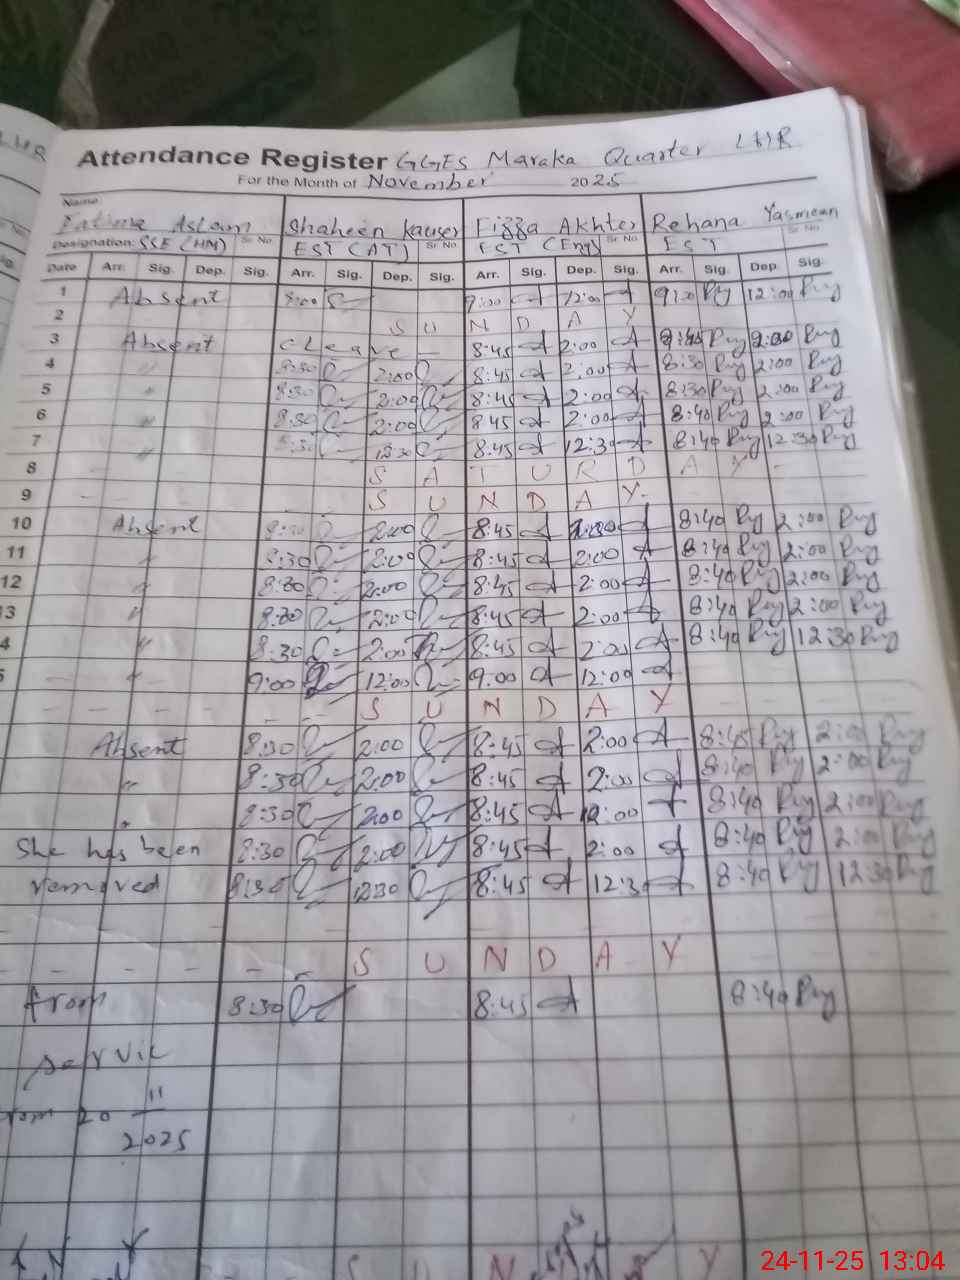 Attendance Register GGES Maraka Quarter LHR
For the Month of November 2025
Name
Fatima Aslam Shaheen Kauser Fizza Akhter Rehana Yasmeen
Designation: SSE (HM) Sr No. EST (AT) Sr No. EST (Eng) Sr No. EST Sr No.
Date Arr. Sig. Dep. Sig. Arr. Sig. Dep. Sig. Arr. Sig. Dep. Sig. Arr. Sig. Dep. Sig.
1 Absent 8:00 9:00 12:00 12:00
2 S U N D A Y
3 Absent c leave 8:45 2:00 2:00
4 " 8:30 2:00 8:45 2:00 8:30 2:00
5 " 8:30 2:00 8:45 2:00 8:30 2:00
6 " 8:30 2:00 8:45 2:00 8:40 2:00
7 " 8:30 8:45 12:30 8:40 12:30
8 S A T U R D A Y
9 S U N D A Y
10 Absent 8:30 2:00 8:45 8:40 2:00
11 " 8:30 2:00 8:45 2:00 8:40 2:00
12 " 8:30 2:00 8:45 2:00 8:40 2:00
3 " 8:30 2:00 8:45 2:00 8:40 2:00
4 " 8:30 2:00 8:45 2:00 8:40 12:30
" 9:00 12:00 9:00 12:00
S U N D A Y
Absent 8:30 2:00 8:45 2:00 8:45 2:00
" 8:30 2:00 8:45 2:00 8:40 2:00
" 8:30 2:00 8:45 8:40 2:00
She has been 8:30 2:00 8:45 2:00 8:40 2:00
removed 8:30 12:30 8:45 12:30 8:40 12:30
S U N D A Y
from 8:30 8:45 8:40
servic
from 20 11
2025
S U N Y
24-11-25 13:04